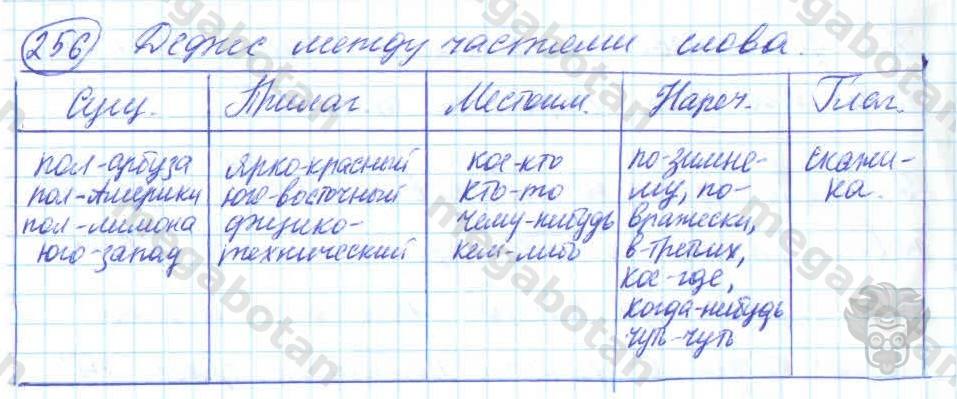 256 Дефис между частями слова.
Сущ. Прилаг. Местоим. Нареч. Глаг.
пол-арбуза ярко-красный кое-кто по-зимне- скажи-
пол-Америки юго-восточный кто-то му, по- ка.
пол-лимона физико- чему-нибудь вражески,
юго-запад технический кем-либо в-третьих,
кое-где,
когда-нибудь
чуть-чуть
megabotan